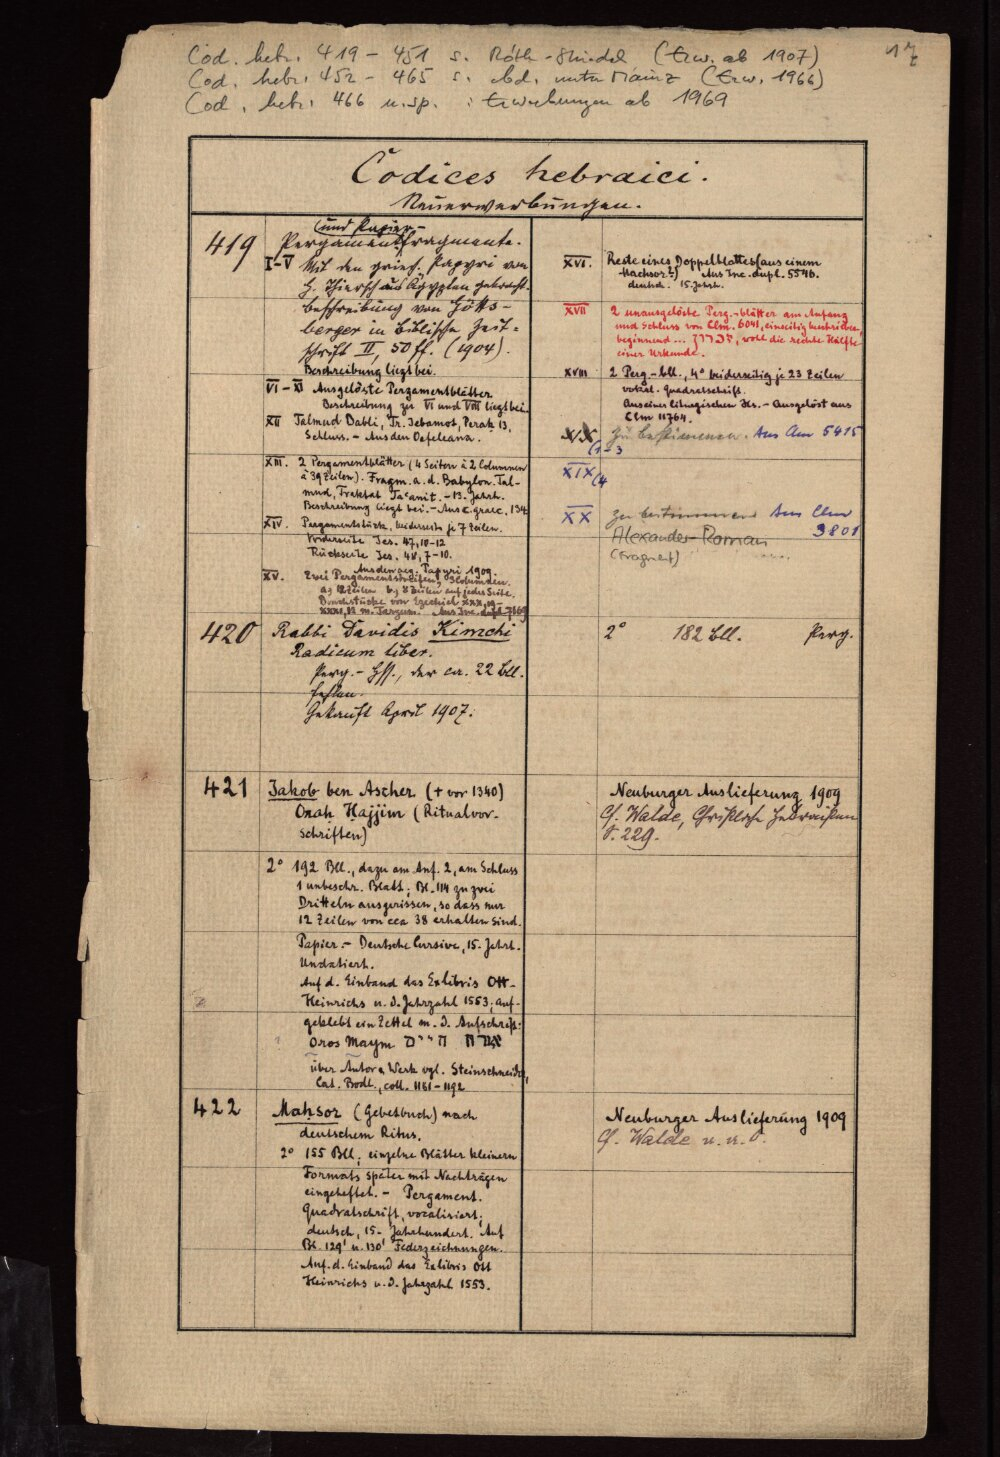 Cod. hebr. 419 – 451 s. Róth-Striedel (Erw. ab 1907)
Cod. hebr. 452 – 465 s. ebd. unter Mainz (Erw. 1966)
Cod. hebr. 466 u. sp. : Erwerbungen ab 1969
17
Codices hebraici.
Neuerwerbungen.
419
und Papier-
Pergamentfragmente.
I–V Mit den griech. Papyri von
H. Thiersch aus Ägypten gebracht.
Beschreibung von Götts-
berger in Biblische Zeit-
schrift II, 50 ff. (1904).
Beschreibung liegt bei.
VI – XI Ausgelöste Pergamentblätter
Beschreibung zu VI und VIII liegt bei.
XII Talmud Babli, Tr. Jebamot, Perak 13,
Schluss. – Aus den Oefeleana.
XIII. 2 Pergamentblätter (4 Seiten à 2 Columnen
à 39 Zeilen). Fragm. a. d. Babylon. Tal-
mud, Traktat Ta'anit. – 13. Jahrh.
Beschreibung liegt bei. – Aus C. graec. 134
XIV. Pergamentstück, beiderseits je 7 Zeilen.
Vorderseite Jes. 47, 10–12
Rückseite Jes. 48, 7–10.
Aus den aeg. Papyri 1909.
XV. Zwei Pergamentstreifen, 3 Columnen
a) 12 Zeilen b) 8 Zeilen auf jeder Seite.
Bruchstücke von Ezechiel XXX, 19–
XXXI, 12 m. Targum. Aus Inc. dupl. 7169
XVI. Reste eines Doppelblattes (aus einem
Machsor?) Aus Inc. dupl. 5540.
deutsch. 15. Jahrh.
XVII 2 unausgelöste Perg.-blätter am Anfang
und Schluss von Clm. 6041, einseitig beschrieben,
beginnend ... , wohl die rechte Hälfte
einer Urkunde.
XVIII 2 Perg.-bll., 4° beiderseitig je 23 Zeilen
vokal. Quadratschrift.
Aus einer liturgischen Hs. – Ausgelöst aus
Clm 11764.
XIX zu bestimmen. Aus Clm 5415
(1–3
XIX (4
XX zu bestimmen Aus Clm
3801
Alexander-Roman
(Fragment)
420
Rabbi Davidis Kimchi
Radicum liber.
Perg.-Hss., der ca. 22 bll.
fehlen.
Gekauft April 1907.
2° 182 bll. Perg.
421
Jakob ben Ascher (+ vor 1340)
Orah Hajjim (Ritualvor-
schriften)
2° 192 Bll., dazu am Anf. 2, am Schluss
1 unbeschr. Blatt; Bl. 114 zu zwei
Dritteln ausgerissen, so dass nur
12 Zeilen von cca 38 erhalten sind.
Papier. – Deutsche Cursive, 15. Jahrh.
Undatiert.
Auf d. Einband das Exlibris Ott-
Heinrichs u. d. Jahrzahl 1553; auf-
geklebt ein Zettel m. d. Aufschrift:
Oros Maym
über Autor u. Werk vgl. Steinschneider,
Cat. Bodl., coll. 1181–1192
Neuburger Auslieferung 1909
Cf. Walde, Christliche Hebraisten
S. 229.
422
Mahsor (Gebetbuch) nach
deutschem Ritus.
2° 155 Bll., einzelne Blätter kleinern
Formats später mit Nachträgen
eingeheftet. – Pergament.
Quadratschrift, vocalisiert;
deutsch, 15. Jahrhundert. Auf
Bl. 129' u. 130' Federzeichnungen.
Auf. d. Einband das Exlibris Ott
Heinrichs u. d. Jahrzahl 1553.
Neuburger Auslieferung 1909
Cf. Walde a. a. O.